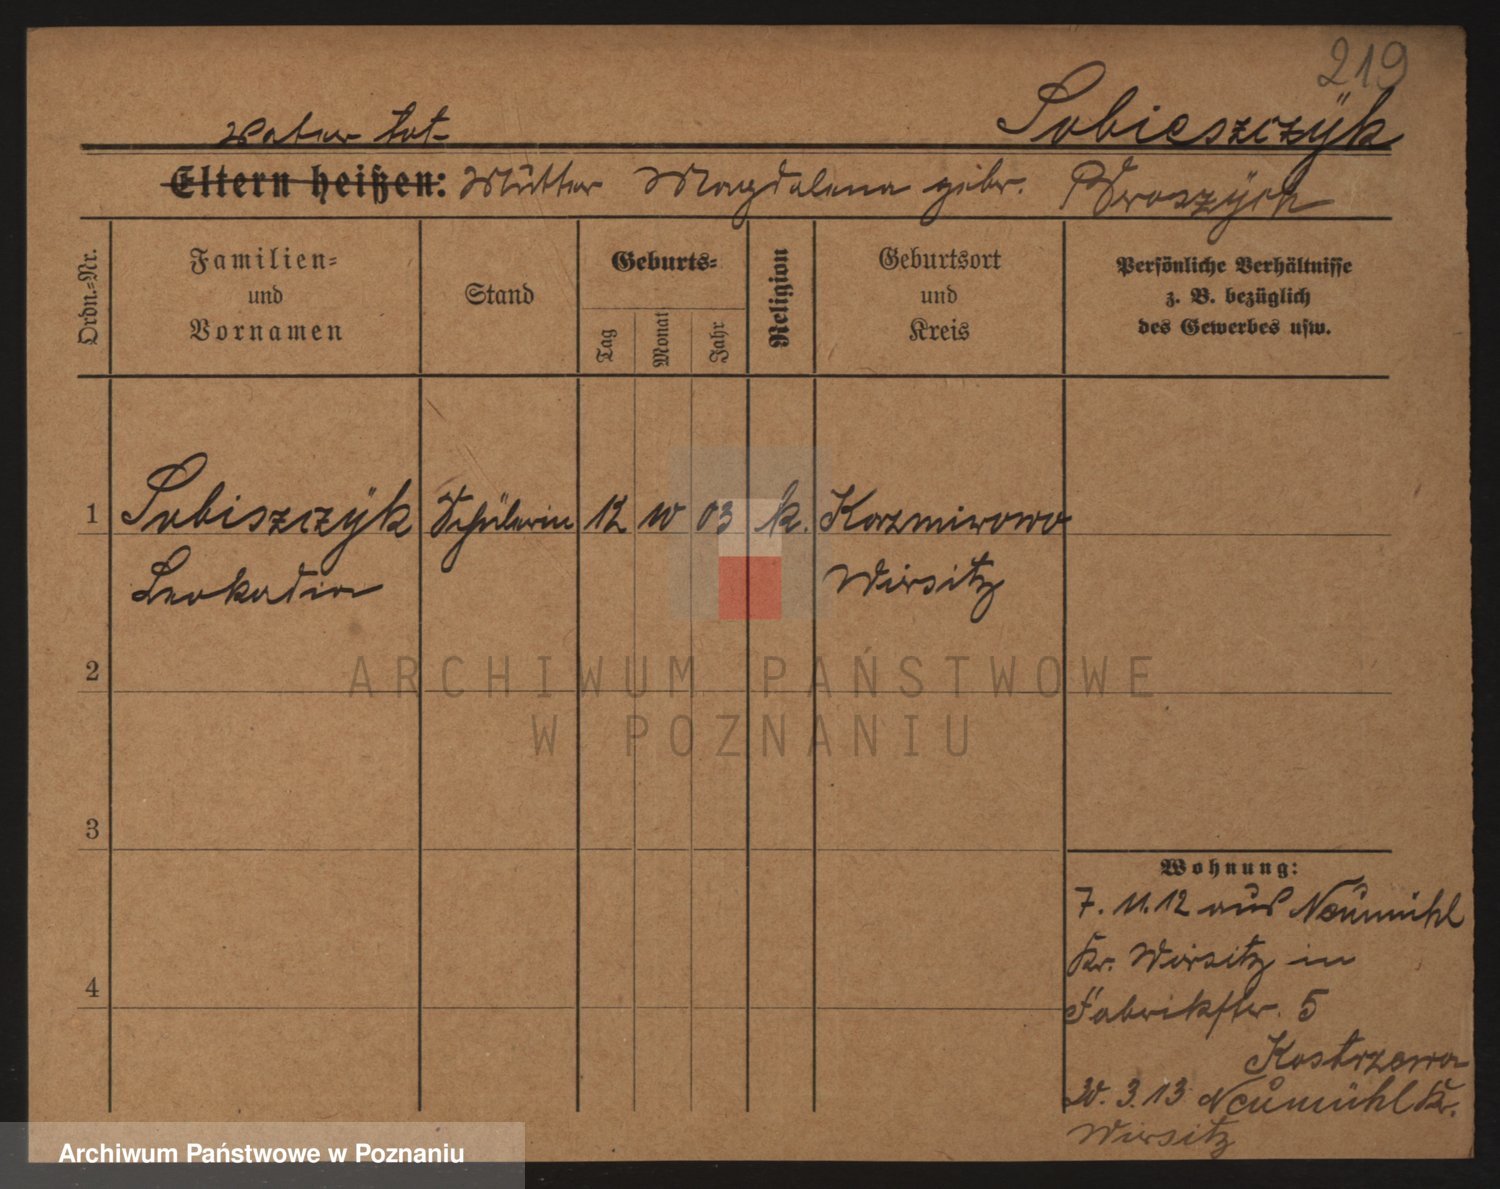 219
Vater tot
Sobieszczÿk
Eltern heißen: Mutter Magdalena gebr.
Ordn.=Nr.
Familien=
und
Vornamen
Stand
Geburts=
Tag
Monat
Jahr
Religion
Geburtsort
und
Kreis
Persönliche Verhältnisse
z. B. bezüglich
des Gewerbes usw.
1 Sobiszczÿk Schülerin 12 10 03 k. Kazmirowo
Leokadia Wirsitz
2
3
4
Wohnung:
7. 11. 12 aus Neumühl
Kr. Wirsitz in
Fabrikstr. 5
Kostrzewa
20. 3. 13 Neumühl Kr.
Wirsitz
ARCHIWUM PAŃSTWOWE
W POZNANIU
Archiwum Państwowe w Poznaniu